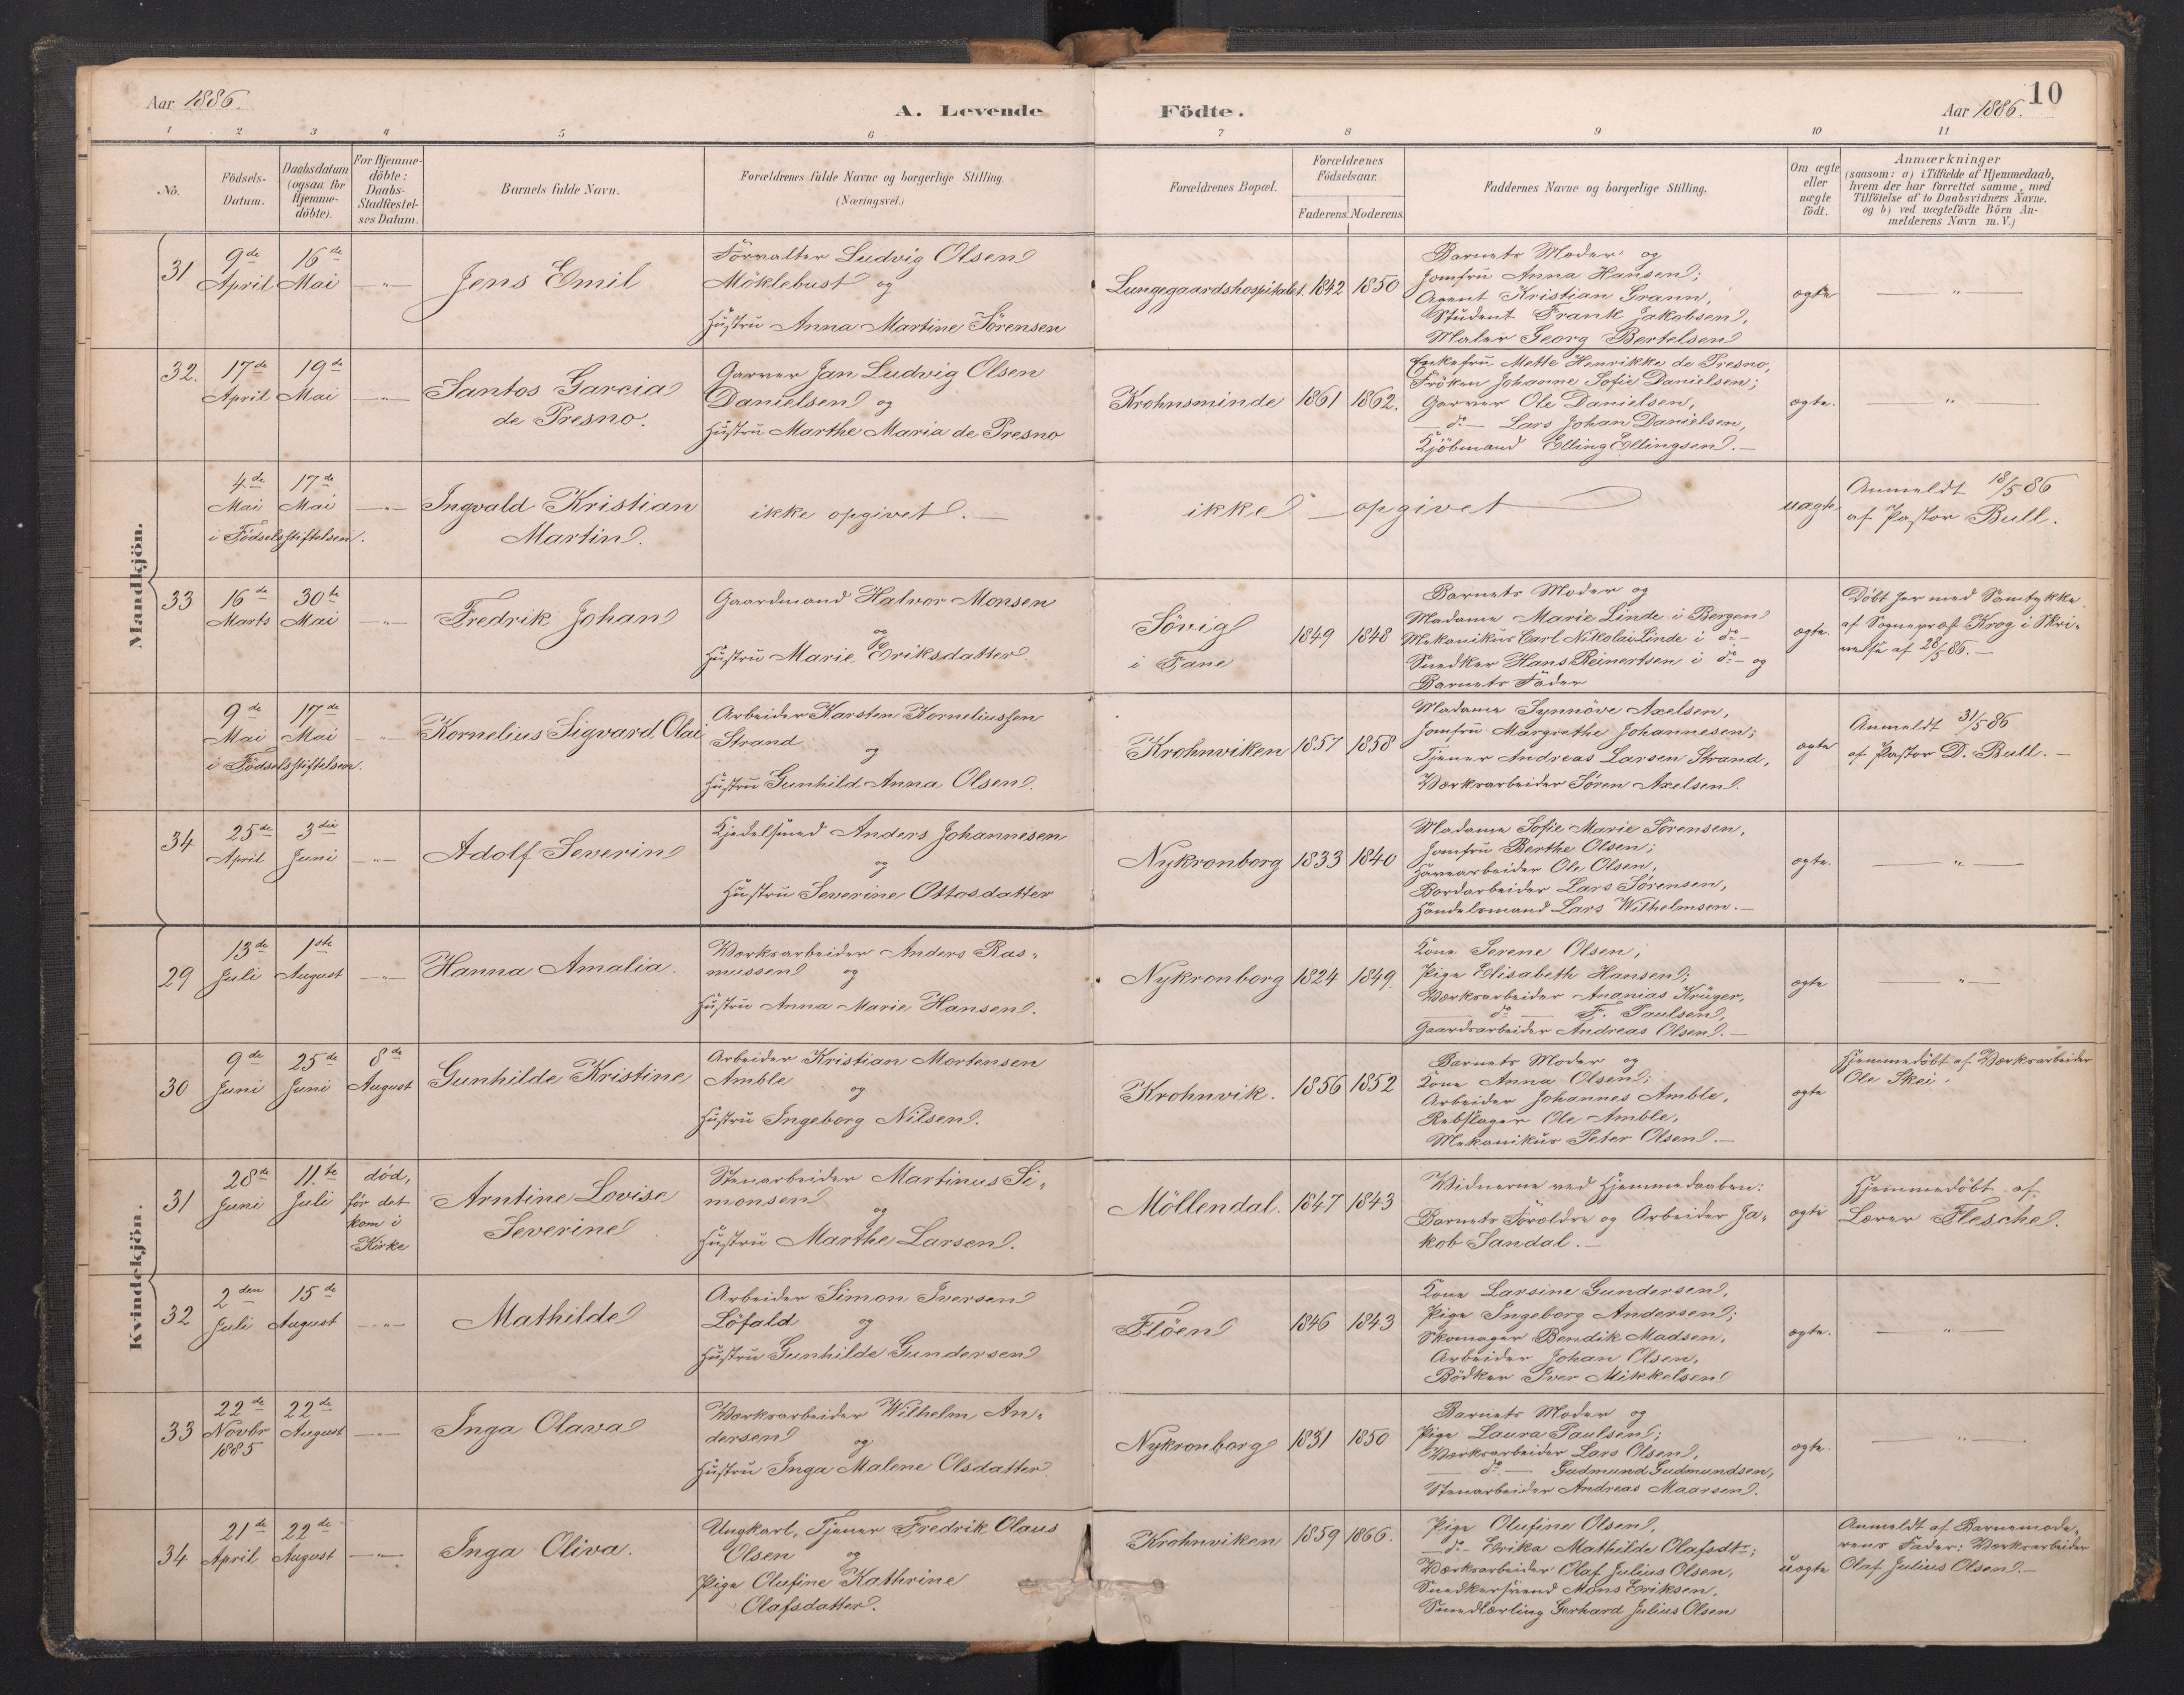 Aar 1886.
A. Levende Födte.
Aar 1886.
10
1 2 3 4 5 6 7 8 9 10 11
No.
Födsels-
Datum.
Daabsdatum
(ogsaa for
Hjemme-
döbte).
For Hjemme-
döbte:
Daabs-
Stadfæstel-
ses Datum.
Barnets fulde Navn.
Forældrenes fulde Navne og borgerlige Stilling.
(Næringsvei.)
Forældrenes Bopæl.
Forældrenes
Födselsaar.
Faderens. Moderens.
Faddernes Navne og borgerlige Stilling.
Om ægte
eller
uægte
födt.
Anmærkninger
(saasom: a) i Tilfælde af Hjemmedaab,
hvem der har forrettet samme, med
Tilföielse af to Daabsvidners Navne.
og b) ved uægtefödte Börn An-
melderens Navn m. V.)
Mandkjön.
31
9de
April
16de
Mai
- " -
Jens Emil
Forvalter Ludvig Olsen
Möklebust og
Hustru Anna Martine Sörensen
Lungegaardshospitalet. 1842 1850
Barnets Moder og
Jomfru Anna Hansen;
Agent Kristian Grann,
Student Frank Jakobsen,
Maler Georg Bertelsen
ægte
— " —
32.
17de
April
19de
Mai
- " -
Santos Garcia
de Presno.
Garver Jan Ludvig Olsen
Danielsen og
Hustru Marthe Maria de Presno
Krohnsminde 1861 1862.
Enkefru Mette Henrikke de Presno,
Fröken Johanne Sofie Danielsen;
Garver Ole Danielsen,
— do — Lars Johan Danielsen,
Kjöbmand Elling Ellingsen. —
ægte.
— " —
4de
Mai
17de
Mai
i Födselsstiftelsen.
- " -
Ingvald Kristian
Martin.
ikke opgivet. —
ikke — opgivet —
uægte
Anmeldt 18/5 86
af Pastor Bull.
33
16de
Marts
30te
Mai
- " -
Fredrik Johan
Gaardmand Halvor Monsen
og
Hustru Marie Eriksdatter.
Sörig
i Fane
1849 1848
Barnets Moder og
Madame Marie Linde i Bergen
Mekanikus Carl Nikolai Linde i do —
Snedker Hans Reinertsen i do — og
Barnets Fader
ægte.
Döbt her med Samtykke
af Sognepræst Krog i Skri-
velse af 28/5 86. —
9de
Mai
17de
Mai
i Födselsstiftelsen.
- " -
Kornelius Sigvard Olai
Arbeider Karsten Korneliussen
Strand og
Hustru Gunhild Anna Olsen.
Krohnviken 1857 1858
Madame Synnöve Axelsen,
Jomfru Margrethe Johannesen;
Tjener Andreas Larsen Strand,
Værksarbeider Sören Axelsen.
ægte
Anmeldt 31/5 86
af Pastor D. Bull. —
34
25de
April
3die
Juni
- " -
Adolf Severin
Kjedelsmed Anders Johannesen
og
Hustru Severine Ottosdatter
Nykronborg 1833 1840
Madame Sofie Marie Sörensen,
Jomfru Berthe Olsen;
Havearbeider Ole Olsen,
Bordarbeider Lars Sörensen,
Handelsmand Lars Wilhelmsen. —
ægte.
— " —
Kvindekjön.
29
13de
Juli
1ste
August
- " -
Hanna Amalia.
Værksarbeider Anders Ras-
mussen og
Hustru Anna Marie Hansen.
Nykronborg 1824 1849.
Kone Serene Olsen,
Pige Elisabeth Hansen;
Værksarbeider Ananias Krüger,
— do — F. Paulsen,
Gaardsarbeider Andreas Olsen. —
ægte
— " —
30
9de
Juni
25de
Juni
8de
August
Gunhilde Kristine
Arbeider Kristian Mortensen
Amble og
Hustru Ingeborg Nilsen.
Krohnvik. 1856 1852
Barnets Moder og
Kone Anna Olsen;
Arbeider Johannes Amble,
Rebslager Ole Amble,
Mekanikus Peter Olsen. —
ægte
Hjemmedöbt af Værksarbeider
Ole Skei.
31
28de
Juni
11.te
Juli
död,
för det
kom i
Kirke
Arntine Lovise
Severine
Stenarbeider Martinus Si-
monsen og
Hustru Marthe Larsen.
Möllendal. 1847 1843
Vidnerne ved Hjemmedaaben:
Barnets Forældre og Arbeider Ja-
kob Sandal. —
ægte
Hjemmedöbt af
Lærer Flesche.
32
2den
Juli
15de
August
- " -
Mathilde
Arbeider Simon Iversen
Löfald og
Hustru Gunhilde Gundersen
Flöen 1846 1843
Kone Larsine Gundersen,
Pige Ingeborg Andersen;
Skomager Bendik Madsen,
Arbeider Johan Olsen,
Bödker Iver Mikkelsen
ægte.
— " —
33
22de
Novbr
1885
22de
August
- " -
Inga Olava
Værksarbeider Wilhelm An-
dersen og
Hustru Inga Malene Olsdatter
Nykronborg 1831 1850
Barnets Moder og
Pige Laura Paulsen;
Værksarbeider Lars Olsen,
— do — Gudmund Gudmundsen,
Stenarbeider Andreas Maarsen.
ægte.
— " —
34
21de
April
22de
August
- " -
Inga Oliva.
Ungkarl, Tjener Fredrik Olaus
Olsen og
Pige Olufine Kathrine
Olafsdatter.
Krohnviken 1859 1866.
Pige Olufine Olsen,
— do — Erika Mathilde Olafsdtr;
Værksarbeider Olaf Julius Olsen,
Snedkersvend Mons Eriksen,
Smedlærling Gerhard Julius Olsen
uægte
Anmeldt af Barnemode-
rens Fader: Værksarbeider
Olaf Julius Olsen. —